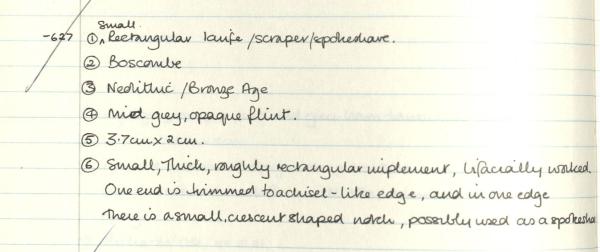 Small.
-627 ① ^ Rectangular knife /scraper/spokeshave.
② Boscombe
③ Neolithic /Bronze Age
④ Mid grey, opaque flint.
⑤ 3.7cm x 2cm.
⑥ Small, Thick, roughly rectangular implement, bifacially worked.
One end is trimmed to a chisel-like edge, and in one edge
There is a small, crescent shaped notch, possibly used as a spokesha